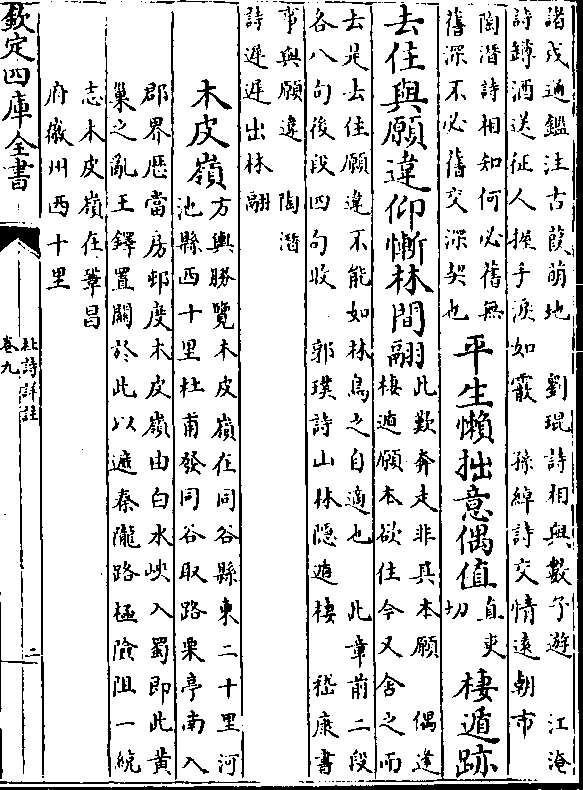 諸戍通鑑注古葭萌地　劉琨詩相與數子遊　江淹
詩罇酒送征人握手淚如霰　孫綽詩交情遠朝市
陶潛詩相知何必舊無
舊深不必舊交深契也
平生懶拙意偶值
直吏
切
棲遁跡
去住與願違仰慚林間翮
此歎奔走非其本願　偶逢
棲遁願本欲住今又舍之而
去是去住願違不能如林鳥之自適也　此章前二段
各八句後段四句收　郭璞詩山林隱遁棲　嵇康書
事與願違　陶潛
詩遲遲出林翮
木皮嶺
方輿勝覽木皮嶺在同谷縣東二十里河
池縣西十里杜甫發同谷取路栗亭南入
郡界歷當房邨度木皮嶺由白水峽入蜀即此黃
巢之亂王鐸置關於此以遮秦隴路極險阻一統
志木皮嶺在鞏昌
府徽州西十里
欽定四庫全書
杜詩詳註
卷九
二